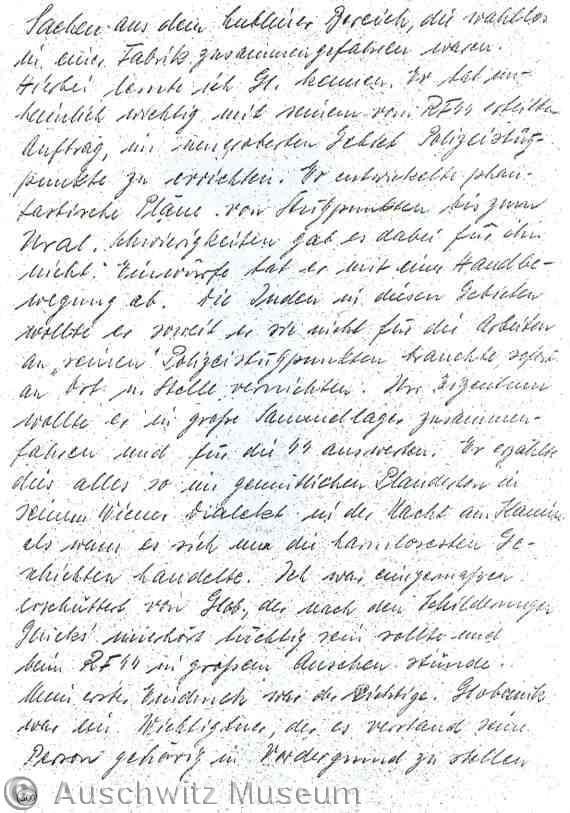 Sachen aus dem Lubliner Bereich, die wahllos
in einer Fabrik zusammengefahren waren.
Hierbei lernte ich Gl. kennen. Er tat un-
heimlich wichtig mit seinem vom RFSS erteilten
Auftrag, im neueroberten Gebiet Polizeistütz-
punkte zu errichten. Er entwickelte phan-
tastische Pläne von Stützpunkten bis zum
Ural. Schwierigkeiten gab es dabei für ihn
nicht. Einwürfe tat er mit einer Handbe-
wegung ab. Die Juden in diesen Gebieten
wollte er soweit er sie nicht für die Arbeiten
an „seinen" Polizeistützpunkten brauchte, sofort
an Ort u. Stelle vernichten. Ihr Eigentum
wollte er in große Sammellager zusammen-
fahren und für die SS auswerten. Er erzählte
dies alles so im gemütlichen Plauderton in
seinem Wiener Dialekt in der Nacht am Kamin
als wenn es sich um die harmlosesten Ge-
schichten handelte. Ich war einigermaßen
erschüttert von Glob., der nach den Schilderungen
Glücks' unerhört tüchtig sein sollte und
beim RFSS in großem Ansehen stünde.
Mein erster Eindruck war der Richtige. Globocnik
war ein Wichtigtuer, der es verstand seine
Person gehörig in Vordergrund zu stellen
© Auschwitz Museum